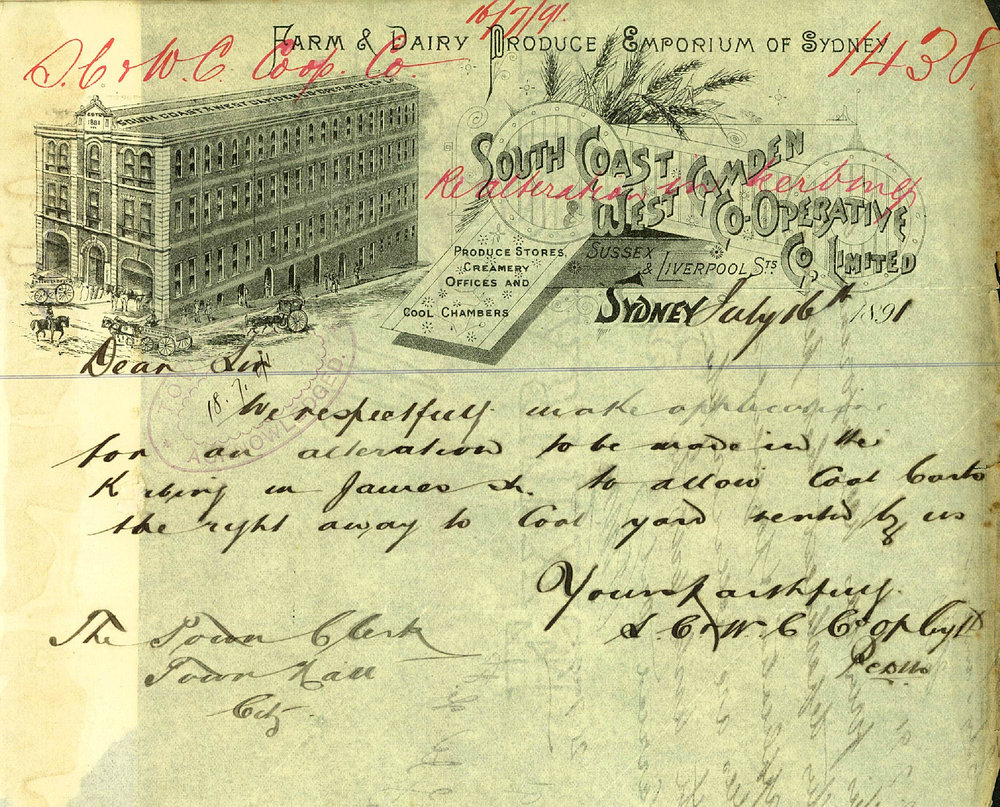 16/7/91
FARM & DAIRY PRODUCE EMPORIUM OF SYDNEY
S. C & W. C. Coop. Co.
1438
SOUTH COAST & WEST CAMDEN CO-OPERATIVE CO. LD
ESTD
1881
SOUTH COAST & WEST CAMDEN CO-OPERATIVE CO, LIMITED
Re alteration in kerbing
PRODUCE STORES,
CREAMERY
OFFICES AND
COOL CHAMBERS
SUSSEX
& LIVERPOOL STS
SYDNEY July 16th 1891
Dear Sir
18.7.91
ACKNOWLEDGED.
We respectfully make application
for an alteration to be made in the
Kerbing in James St. to allow Coal Carts
the right away to Coal yard rented by us
Yours faithfully
S. C & W. C Co op Coy Ld
The Town Clerk
Town Hall
City.